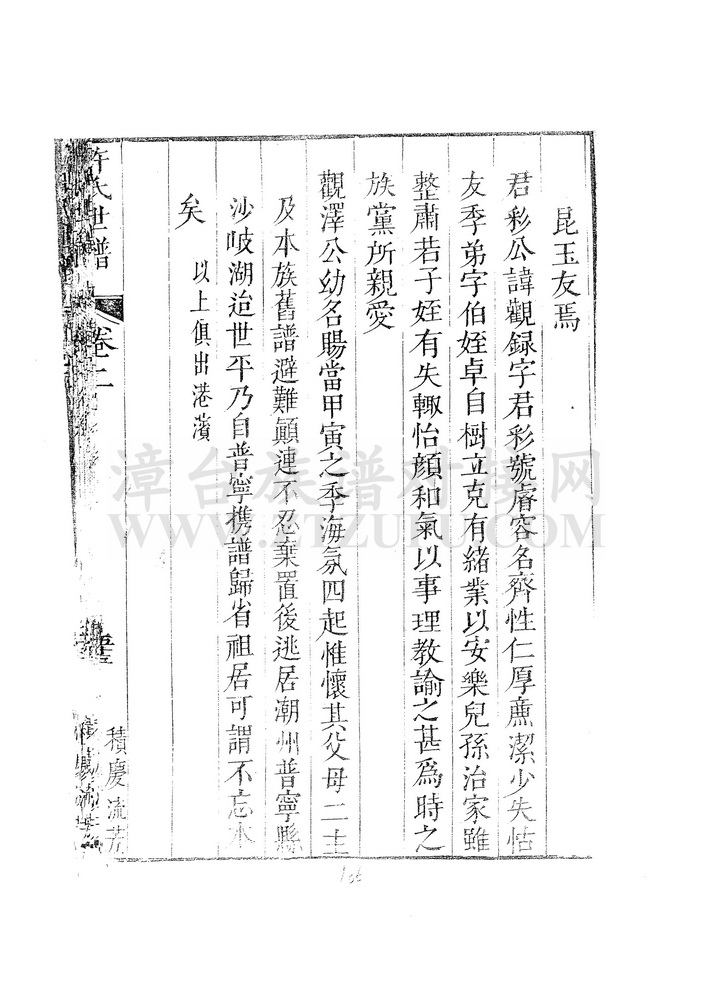 昆玉友焉
君彩公諱觀録字君彩號睿容名齊性仁厚亷潔少失怙
友季弟字伯姪卓自樹立克有緒業以安樂兒孫治家雖
整肅若子姪有失輙怡顏和氣以事理教諭之甚爲時之
族黨所親愛
觀澤公幼名賜當甲寅之季海氛四起惟懷其父母二主
及本族舊譜避難顚連不忍棄置後逃居潮州普寧縣
沙岐湖迨世平乃自普寧携譜歸省祖居可謂不忘本
矣 以上俱出港濱
許氏世譜 卷二
積慶流芳
漳台族谱对接网
WWW.ZTZUPU.COM
106